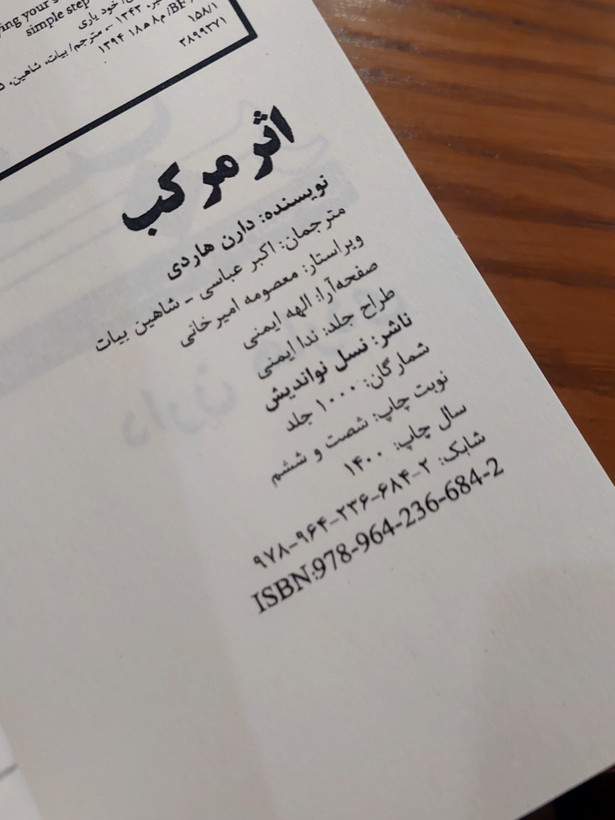 ying your
simple step
خود یاری
۱۳۴۳ – مترجم/بیات، شاهین،
BF/م۸ ه۱۸ ۱۳۹۴
۱۵۸/۱
۳۸۹۹۳۷۱
اثر مرکب
نویسنده: دارن هاردی
مترجمان: اکبر عباسی – شاهین بیات
ویراستار: معصومه امیرخانی
صفحه‌آرا: الهه ایمنی
طراح جلد: ندا ایمنی
ناشر: نسل نواندیش
شمارگان: ۱۰۰۰ جلد
نوبت چاپ: شصت و ششم
سال چاپ: ۱۴۰۰
شابک: ۲-۶۸۴-۲۳۶-۹۶۴-۹۷۸
ISBN:978-964-236-684-2